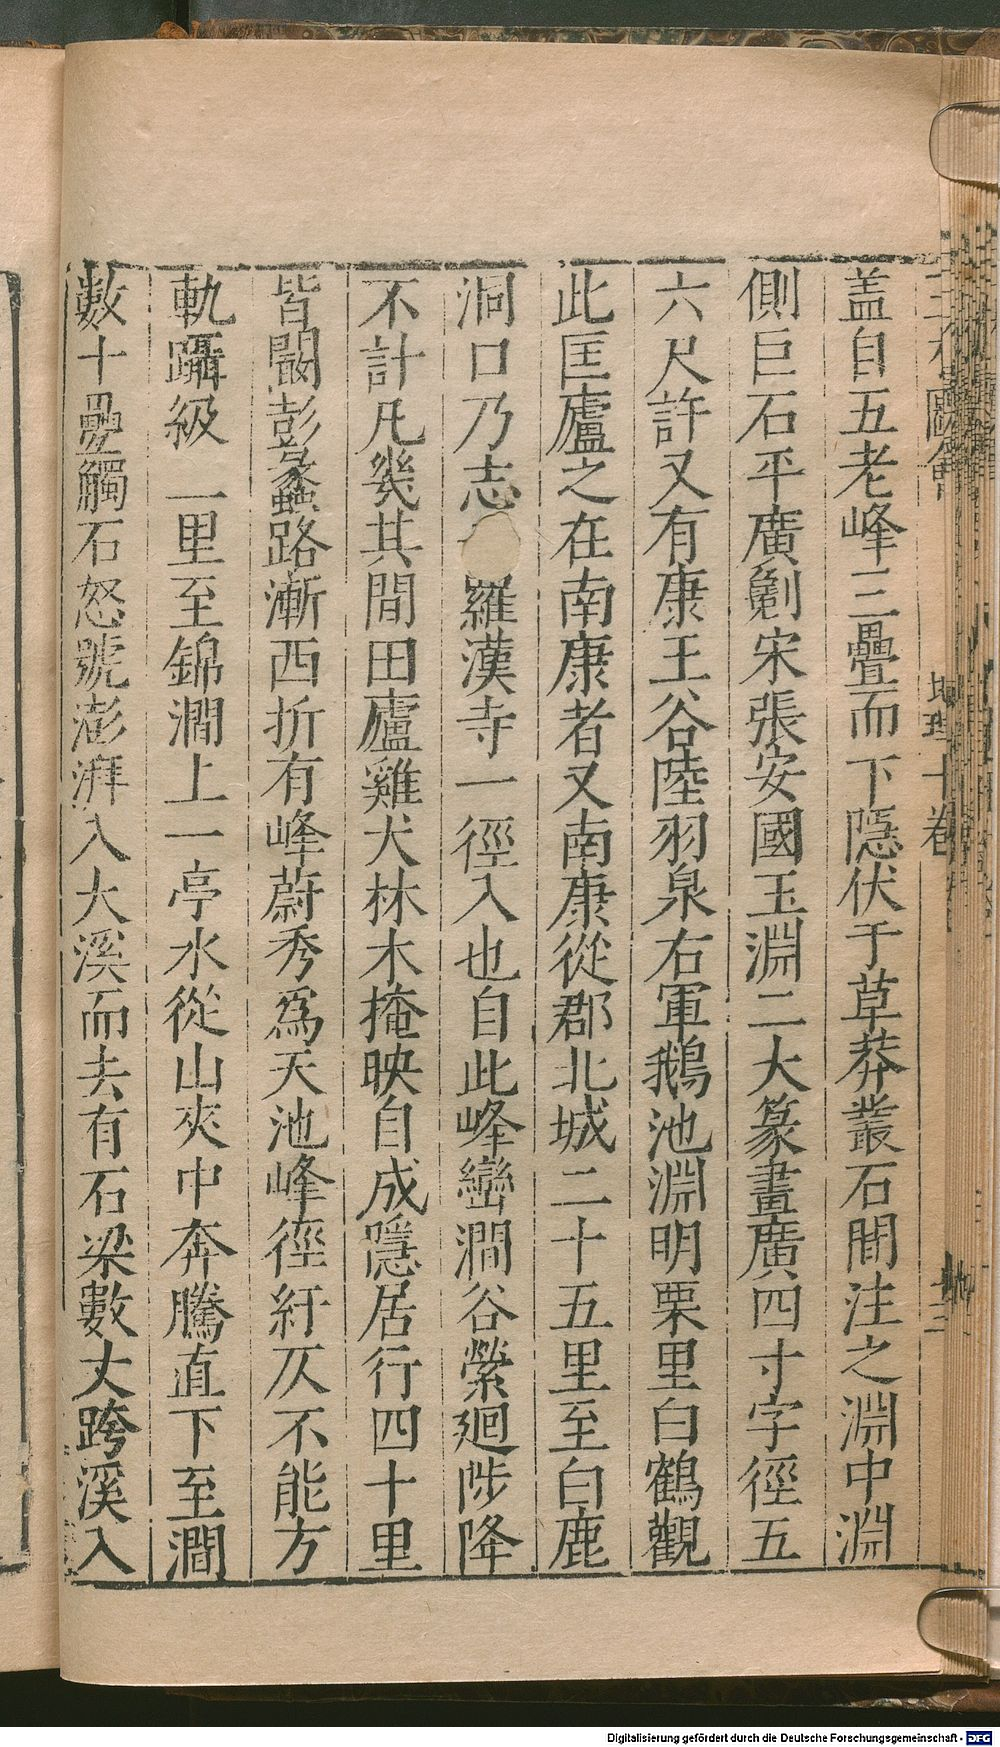 三才圖會
地理十卷
盖自五老峰三疊而下隱伏于草莽叢石間注之淵中淵
側巨石平廣劖宋張安國玉淵二大篆畫廣四寸字徑五
六尺許又有康王谷陸羽泉右軍鵝池淵明栗里白鶴觀
此匡廬之在南康者又南康從郡北城二十五里至白鹿
洞口乃志羅漢寺一徑入也自此峰巒澗谷縈廻陟降
不計凡幾其間田廬雞犬林木掩映自成隱居行四十里
皆闞彭蠡路漸西折有峰蔚秀爲天池峰徑紆仄不能方
軌躡級一里至錦澗上一亭水從山夾中奔騰直下至澗
數十疊觸石怒號澎湃入大溪而去有石梁數丈跨溪入
Digitalisierung gefördert durch die Deutsche Forschungsgemeinschaft - DFG